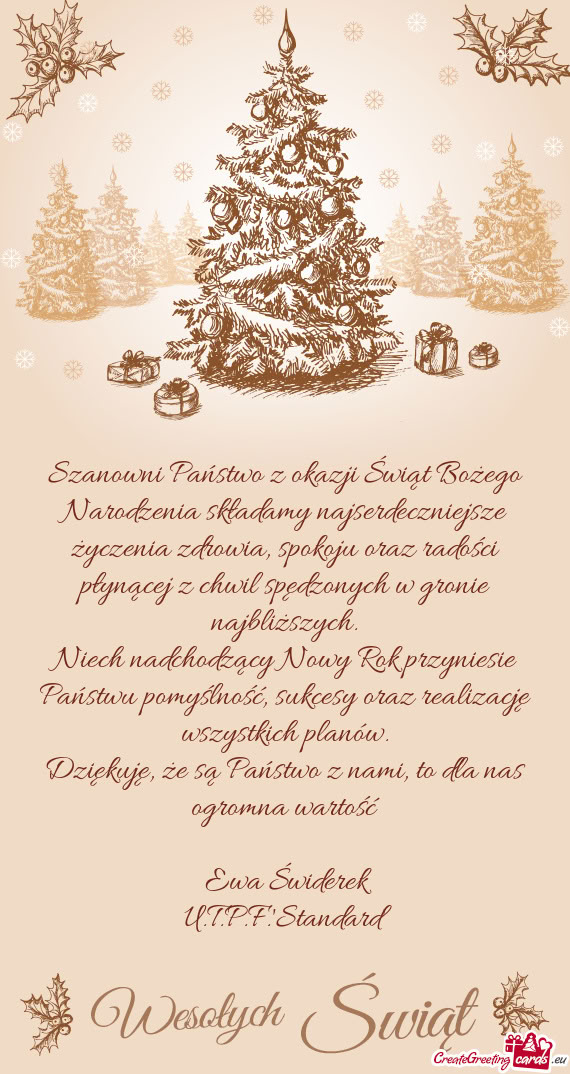 Szanowni Państwo z okazji Świąt Bożego
Narodzenia składamy najserdeczniejsze
życzenia zdrowia, spokoju oraz radości
płynącej z chwil spędzonych w gronie
najbliższych.
Niech nadchodzący Nowy Rok przyniesie
Państwu pomyślność, sukcesy oraz realizację
wszystkich planów.
Dziękuję, że są Państwo z nami, to dla nas
ogromna wartość
Ewa Świderek
U.T.P.F.'Standard
Wesołych Świąt
CreateGreetingcards.eu